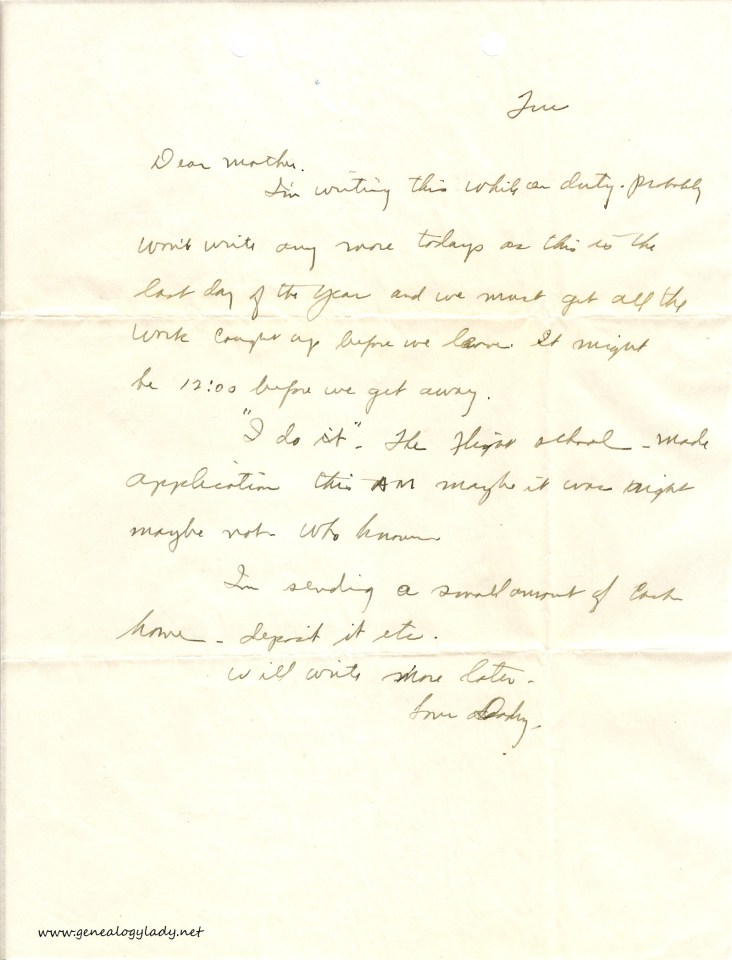 Tue
Dear mother.
I'm writing this while on duty. probably
won't write any more todays as this is the
last day of the year and we must get all the
work caught up before we leave. It might
be 12:00 before we get away.
"I do it" - the flight school - made
application this AM maybe it was right
maybe not - who knows
Im sending a small amount of cash
home - deposit it etc.
Will write more later -
Love
www.genealogylady.net